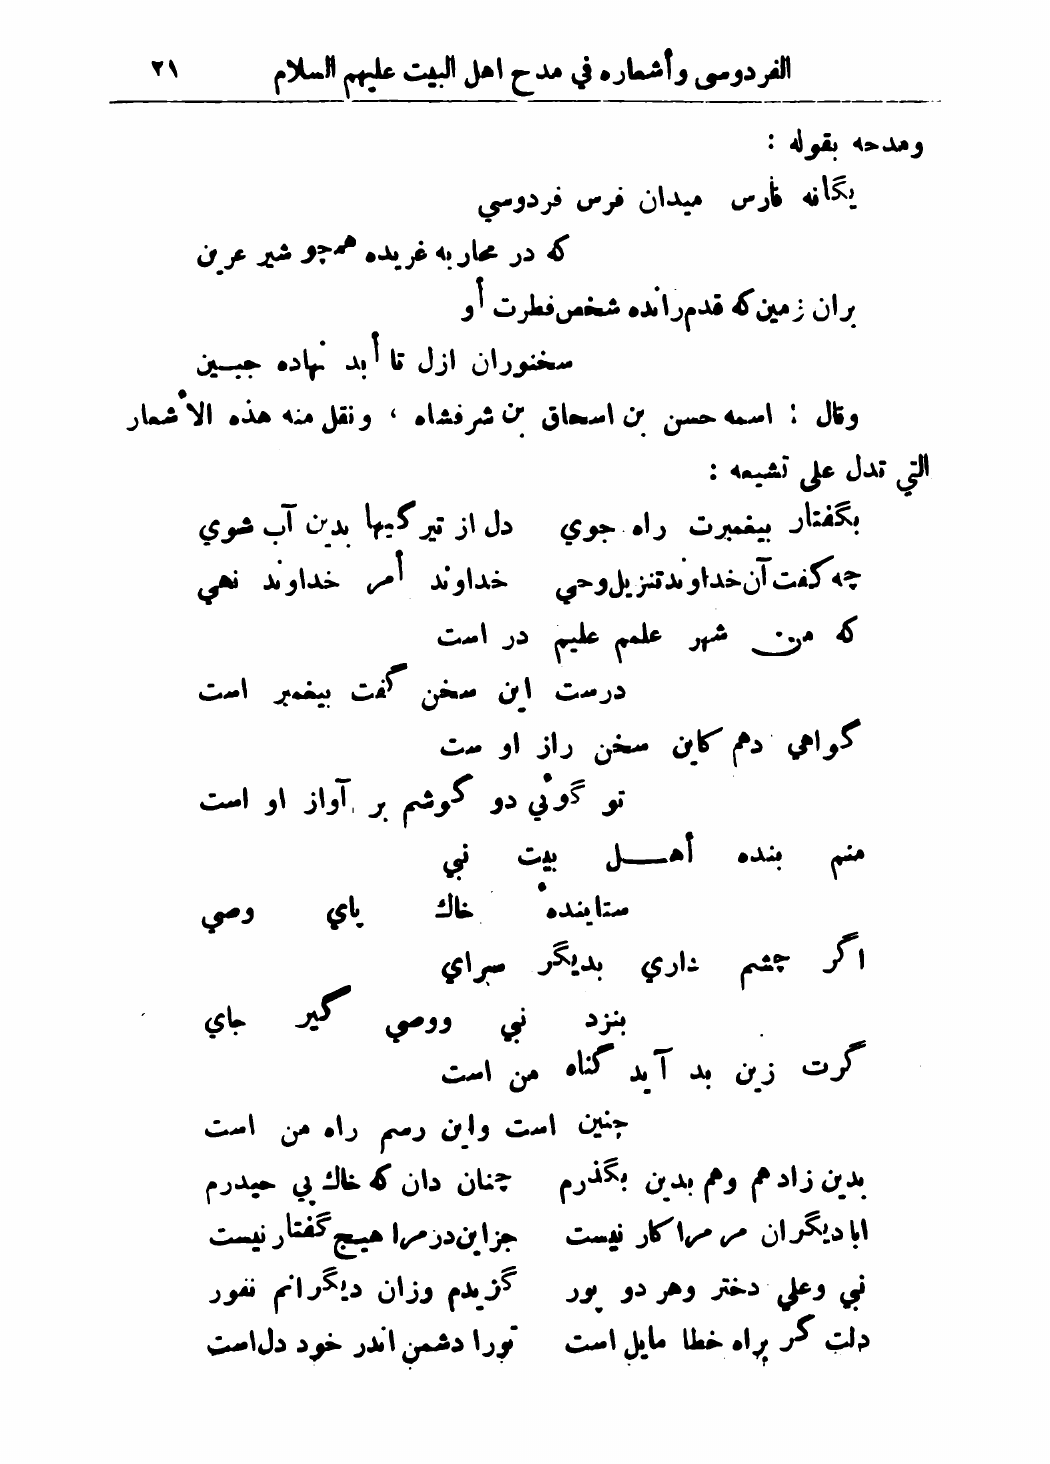 الفردوسي وأشعاره في مدح اهل البيت عليهم السلام ٢١
ومدحه بقوله :
يگانه فارس ميدان فرس فردوسي
كه در محاربه غريده همچو شير عرين
بران زمين كه قدم رانده شخص فطرت أو
سخنوران ازل تا أبد نهاده جبــين
وقال : اسمه حسن بن اسحاق بن شرفشاه ، ونقل منه هذه الأشعار
التي تدل على تشيعه :
بگفتار بيغمبرت راه جوي دل از تيرگيها بدين آب شوي
چه گفت آن خداوند تنزيل وحي خداوند أمر خداوند نهي
كه من شهر علمم عليم در است
درست اين سخن گفت بيغمبر است
گواهي دهم كاين سخن راز او ست
تو گوئي دو گوشم بر آواز او است
منم بنده أهــل بيت نبي
ستايندهٔ خاك پاي وصي
اگر چشم داري بديگر سراي
بنزد نبي ووصي گير جاي
گرت زين بد آيد گناه من است
چنين است واين رسم راه من است
بدين زادهم وهم بدين بگذرم چنان دان كه خاك پي حيدرم
ابا ديگران مر مرا كار نيست جز اين در مرا هيچ گفتار نيست
نبي وعلي دختر وهر دو پور گزيدم وزان ديگرانم نفور
دلت گر براه خطا مايل است تورا دشمن اندر خود دل است